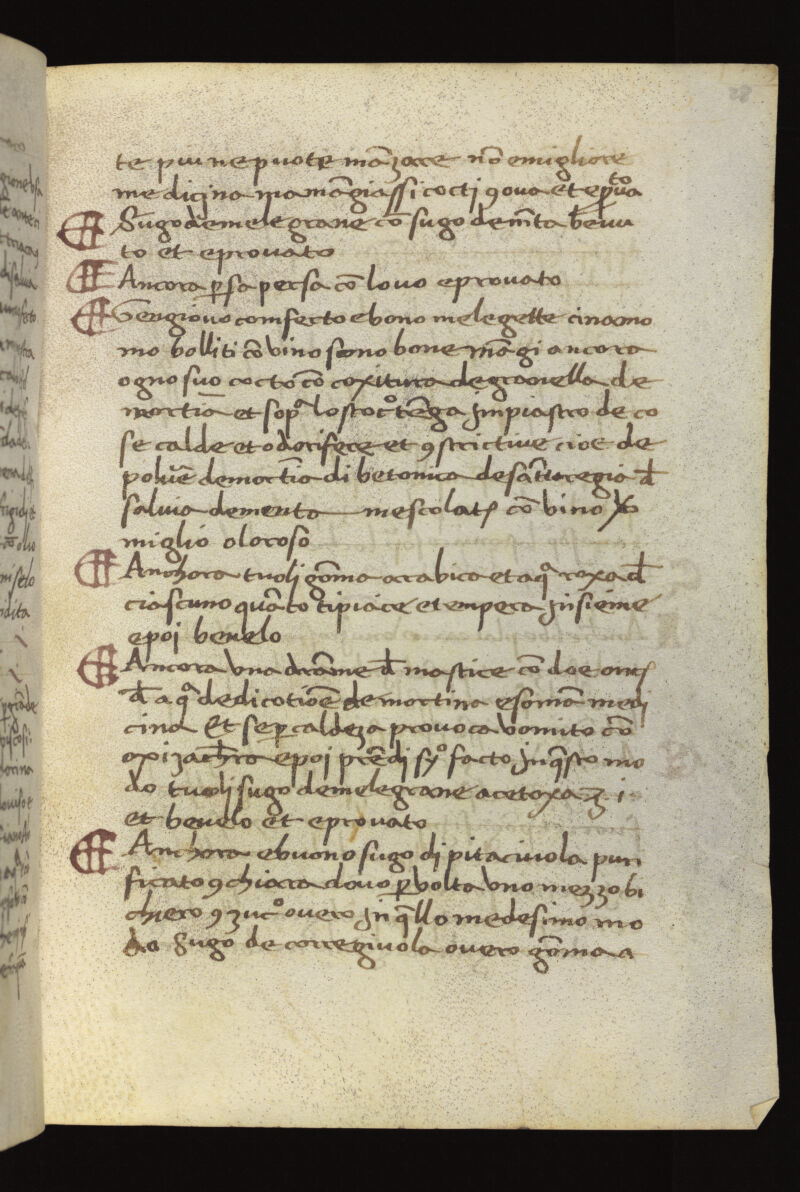 te piu ne puote mãzare nõ e migliore
medicina ma mãgiassi cocti 9 ova et e ꝑvato
Sugo de melegrane cõ sugo de mẽta bevu
to et e provato
Ancora ꝑsa persa cõ lovo e provato
Gengiovo comfecto e bono melegette cinamo
mo bolliti cõ vino sono bone mãgi ancora
ogno suo cocto cõ coxitura de granella de
mortia et sopra lo stoco tẽga Jmpiastro de co
se calde et odorifere et 9strictive cioe de
polvẽ de mortia di betonica de sãturegia đ
salvia de menta mescolate cõ vino
miglio oloroso
Anchora tuoli gõma arabica et aqa roxa đ
ciascuno quãto ti piace et tempera Jnsieme
e poi bevelo
Ancora una drãme đ mastice cõ doe onze
đ aqa de dicotiõe de mortina e somã medi
cina Et se per caldeza provoca vomito cõ
oxizachra e poi prẽdi syo facto Jn questo mo
do tuoli sugo de melegrane acetoxa ʒ i
et bevelo et e provato
Anchora e buono sugo di pitaciuola puri
ficato 9 chiara dovo ꝑ volta uno mezzo bi
chiero 9 zuco overo Jn quello medesimo mo
do Sugo de corregiuola overo gõma a